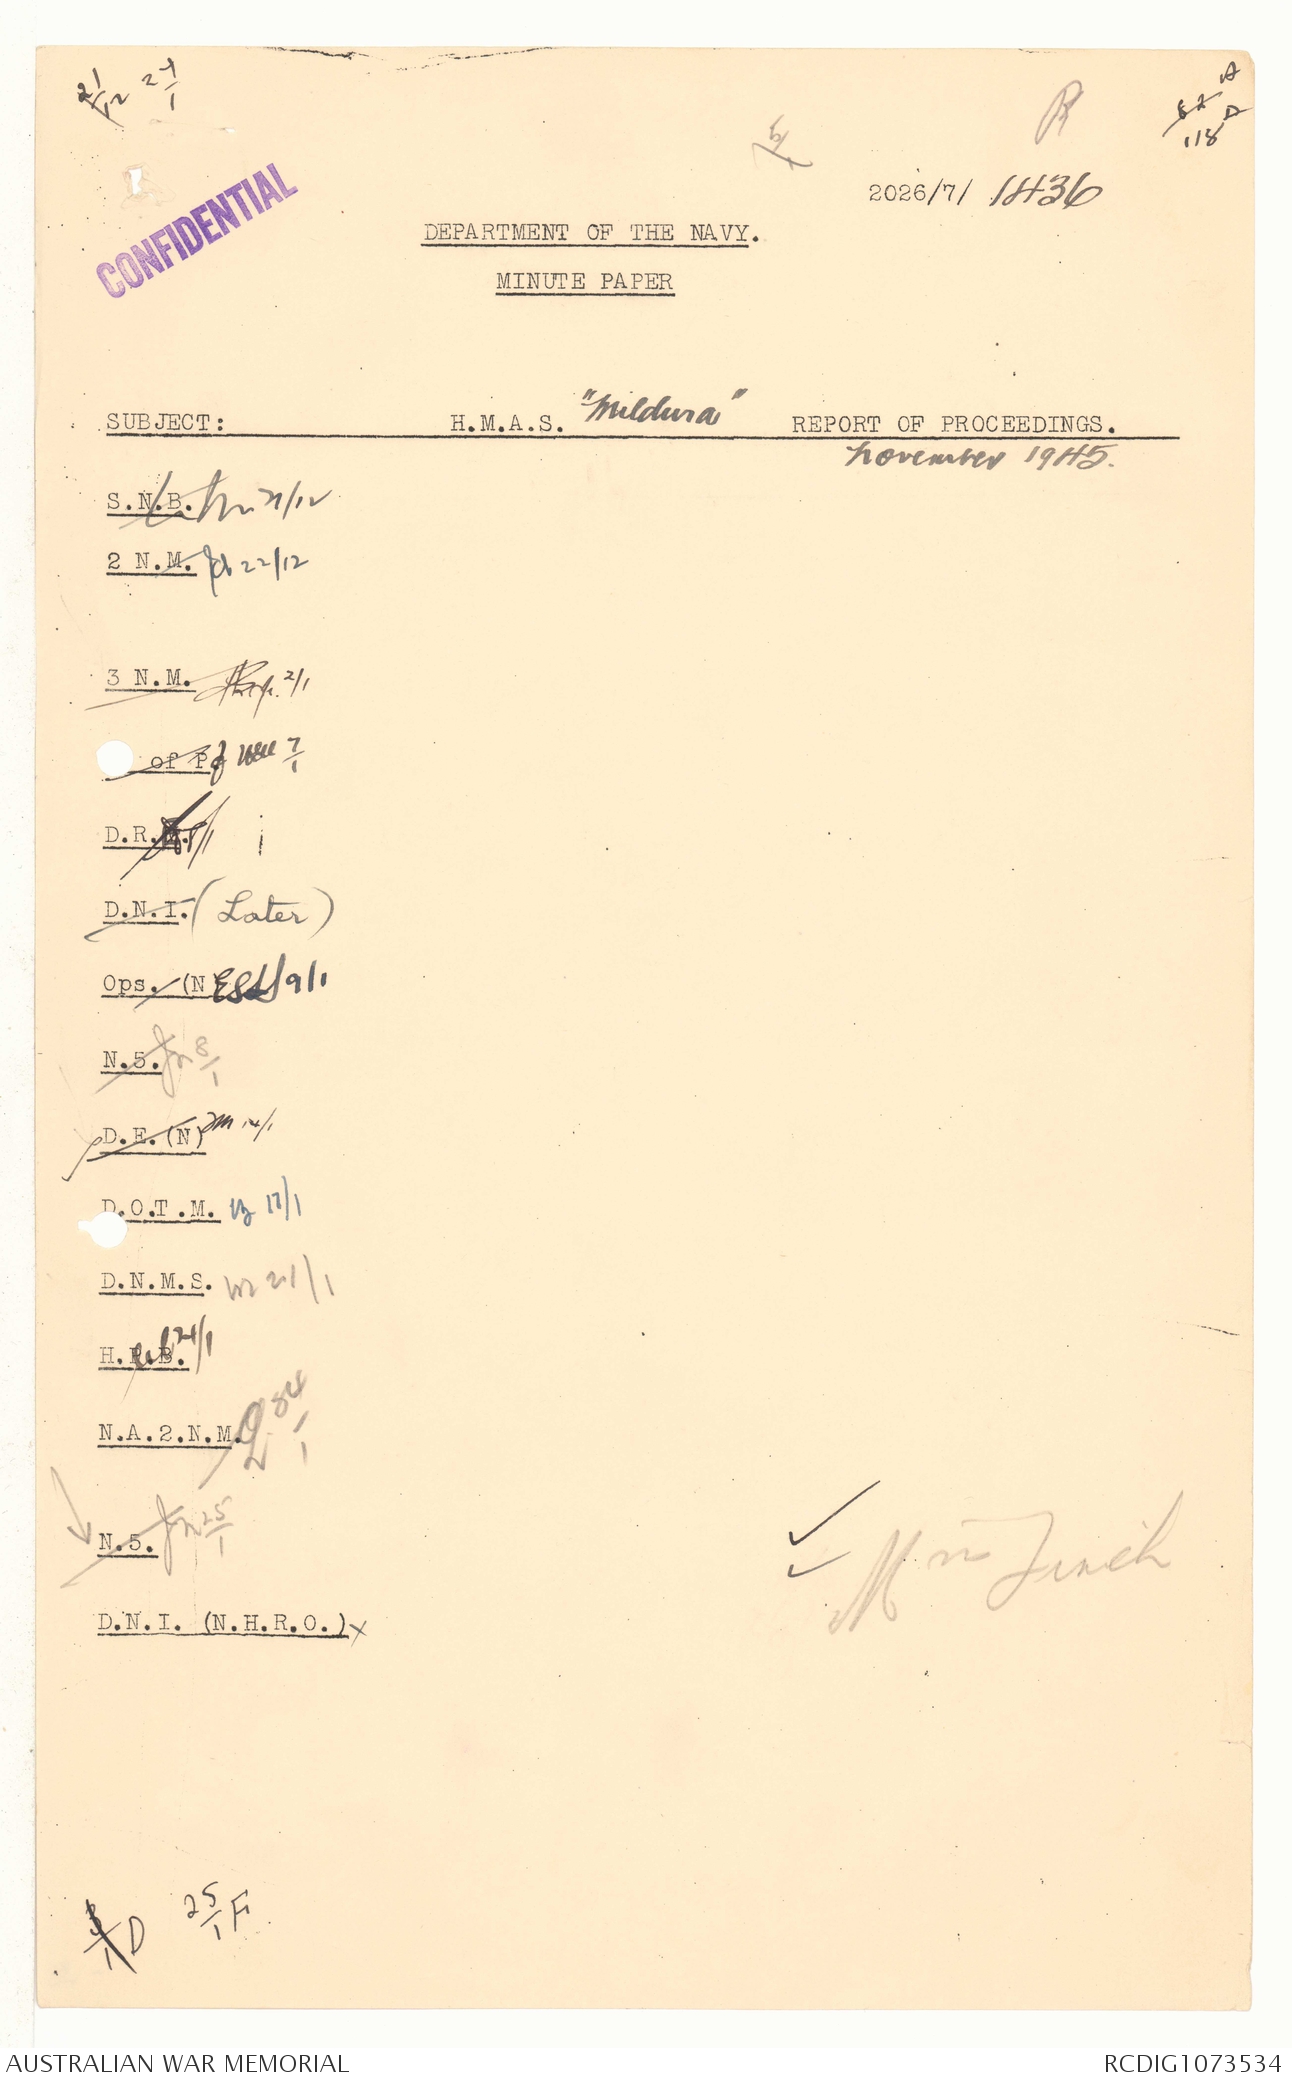 21/12 24/1
R
118
5/1
2026/7/ 1436
CONFIDENTIAL
DEPARTMENT OF THE NAVY.
MINUTE PAPER
SUBJECT: H.M.A.S. "Mildura" REPORT OF PROCEEDINGS.
November 1945.
S.N.B. 21/12
2 N.M. 22/12
3 N.M. 2/1
of P. 7/1
D.R.
D.N.I. (Later)
Ops. (N) 9/1
N.5. 8/1
D.E.(N) 14/1
D.O.T.M. 17/1
D.N.M.S. 21/1
H.P.B. 24/1
N.A.2.N.M. 24/1
N.5. 25/1
Mr Finch
D.N.I. (N.H.R.O.) x
D 25/1 F
AUSTRALIAN WAR MEMORIAL RCDIG1073534